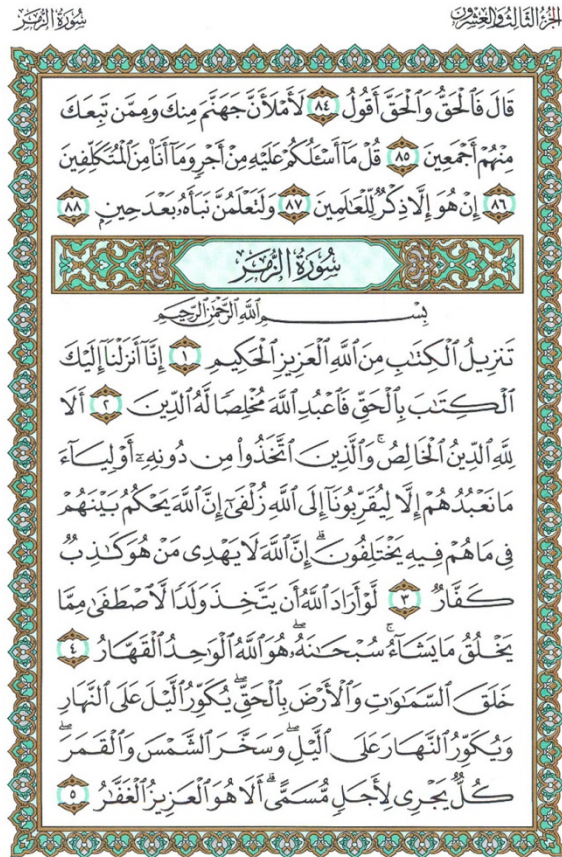 الجزء الثالث والعشرون
سُورَةُ الزُّمَرِ
قَالَ فَٱلْحَقُّ وَٱلْحَقَّ أَقُولُ ٨٤ لَأَمْلَأَنَّ جَهَنَّمَ مِنكَ وَمِمَّن تَبِعَكَ
مِنْهُمْ أَجْمَعِينَ ٨٥ قُلْ مَآ أَسْـَٔلُكُمْ عَلَيْهِ مِنْ أَجْرٍ وَمَآ أَنَا۠ مِنَ ٱلْمُتَكَلِّفِينَ
٨٦ إِنْ هُوَ إِلَّا ذِكْرٌ لِّلْعَـٰلَمِينَ ٨٧ وَلَتَعْلَمُنَّ نَبَأَهُۥ بَعْدَ حِينٍۭ ٨٨
سُورَةُ الزُّمَرِ
بِسْمِ ٱللَّهِ ٱلرَّحْمَـٰنِ ٱلرَّحِيمِ
تَنزِيلُ ٱلْكِتَـٰبِ مِنَ ٱللَّهِ ٱلْعَزِيزِ ٱلْحَكِيمِ ١ إِنَّآ أَنزَلْنَآ إِلَيْكَ
ٱلْكِتَـٰبَ بِٱلْحَقِّ فَٱعْبُدِ ٱللَّهَ مُخْلِصًا لَّهُ ٱلدِّينَ ٢ أَلَا
لِلَّهِ ٱلدِّينُ ٱلْخَالِصُ ۚ وَٱلَّذِينَ ٱتَّخَذُوا۟ مِن دُونِهِۦٓ أَوْلِيَآءَ
مَا نَعْبُدُهُمْ إِلَّا لِيُقَرِّبُونَآ إِلَى ٱللَّهِ زُلْفَىٰٓ إِنَّ ٱللَّهَ يَحْكُمُ بَيْنَهُمْ
فِى مَا هُمْ فِيهِ يَخْتَلِفُونَ ۗ إِنَّ ٱللَّهَ لَا يَهْدِى مَنْ هُوَ كَـٰذِبٌ
كَفَّارٌ ٣ لَّوْ أَرَادَ ٱللَّهُ أَن يَتَّخِذَ وَلَدًا لَّٱصْطَفَىٰ مِمَّا
يَخْلُقُ مَا يَشَآءُ ۚ سُبْحَـٰنَهُۥ ۖ هُوَ ٱللَّهُ ٱلْوَٰحِدُ ٱلْقَهَّارُ ٤
خَلَقَ ٱلسَّمَـٰوَٰتِ وَٱلْأَرْضَ بِٱلْحَقِّ ۖ يُكَوِّرُ ٱلَّيْلَ عَلَى ٱلنَّهَارِ
وَيُكَوِّرُ ٱلنَّهَارَ عَلَى ٱلَّيْلِ ۖ وَسَخَّرَ ٱلشَّمْسَ وَٱلْقَمَرَ ۖ
كُلٌّ يَجْرِى لِأَجَلٍ مُّسَمًّى ۗ أَلَا هُوَ ٱلْعَزِيزُ ٱلْغَفَّـٰرُ ٥